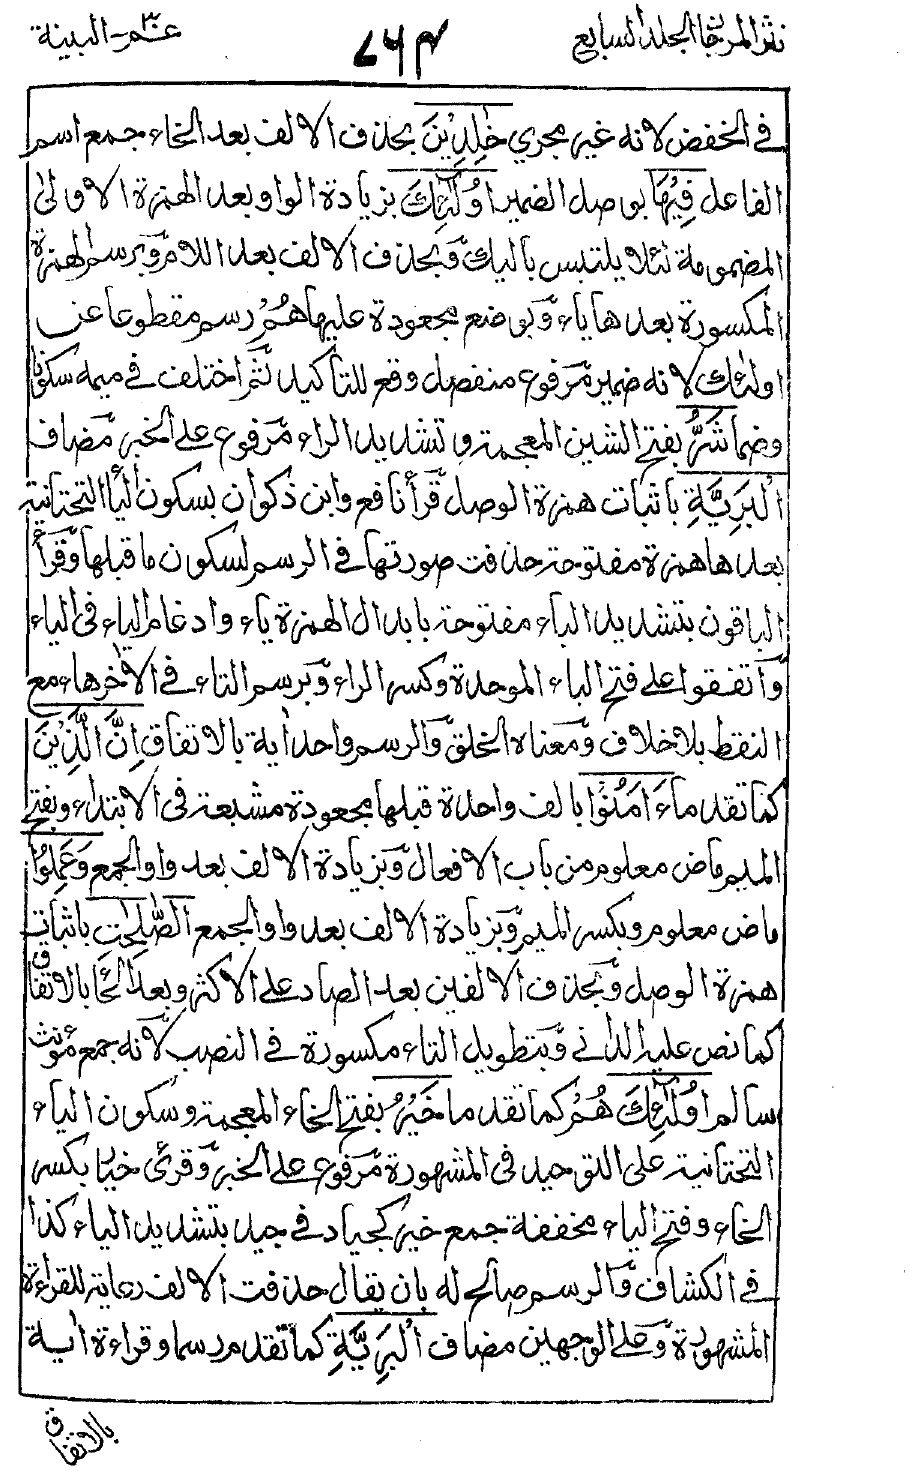 نثر المرجان الجلد السابع
٧٦٣
عم ٣٠ البينة
في الخفض لانه غير مجرى خٰلِدِيْنَ بحذف الالف بعد الخاء جمع اسم
الفاعل فِيْهَا بوصل الضمير اُولٰۤئِكَ بزيادة الواو بعد الهمزة الاولى
المضمومة لئلا يلتبس باليك وبحذف الالف بعد اللام وبرسم الهمزة
المكسورة بعدها ياء وبوضع مجعودة عليها هُمْ رسم مقطوعا عن
اولئك لانه ضمير مرفوع منفصل وقع للتاكيد ثم اختلف في ميمه سكونا
وضما شَرُّ بفتح الشين المعجمة وتشديد الراء مرفوع على الخبر مضاف
اَلْبَرِيَّةِ باثبات همزة الوصل قرأ نافع وابن ذكوان بسكون اليا التحتانية
بعدها همزة مفتوحة حذفت صورتها في الرسم لسكون ما قبلها وقرأ
الباقون بتشديد الياء مفتوحة بابدال الهمزة ياء وادغام الياء في الياء
واتفقوا على فتح الباء الموحدة وكسر الراء وبرسم التاء في الآخر هاء مع
النقط بلا خلاف ومعناه الخلق والرسم واحد اٰية بالاتفاق اِنَّ الَّذِيْنَ
كما تقدما ءَامَنُوْا بالف واحدة قبلها مجعودة مشبعة في الابتداء وبفتح
الميم ماض معلوم من باب الافعال وبزيادة الالف بعد واو الجمع وَعَمِلُوا
ماض معلوم وبكسر الميم وبزيادة الالف بعد واو الجمع الصّٰلِحٰتِ باثبات
همزة الوصل وبحذف الالفين بعد الصاد على الاكثر وبعد الحا بالاتفاق
كما نص عليه الداني وبتطويل التاء مكسورة في النصب لانه جمع مؤنث
سالم اُولٰۤئِكَ هُمْ كما تقدما خَيْرُ بفتح الخاء المعجمة وسكون الياء
التحتانية على التوحيد في المشهورة مرفوع على الخبر وقرئ خيار بكسر
الخاء وفتح الياء مخففة جمع خير كجياد في جيد بتشديد الياء كذا
في الكشاف والرسم صالح له بان يقال حذفت الالف رعاية للقراءة
المشهورة وعلى الوجهين مضاف اَلْبَرِيَّةِ كما تقدم رسما وقراءة اٰية
بالاتفاق